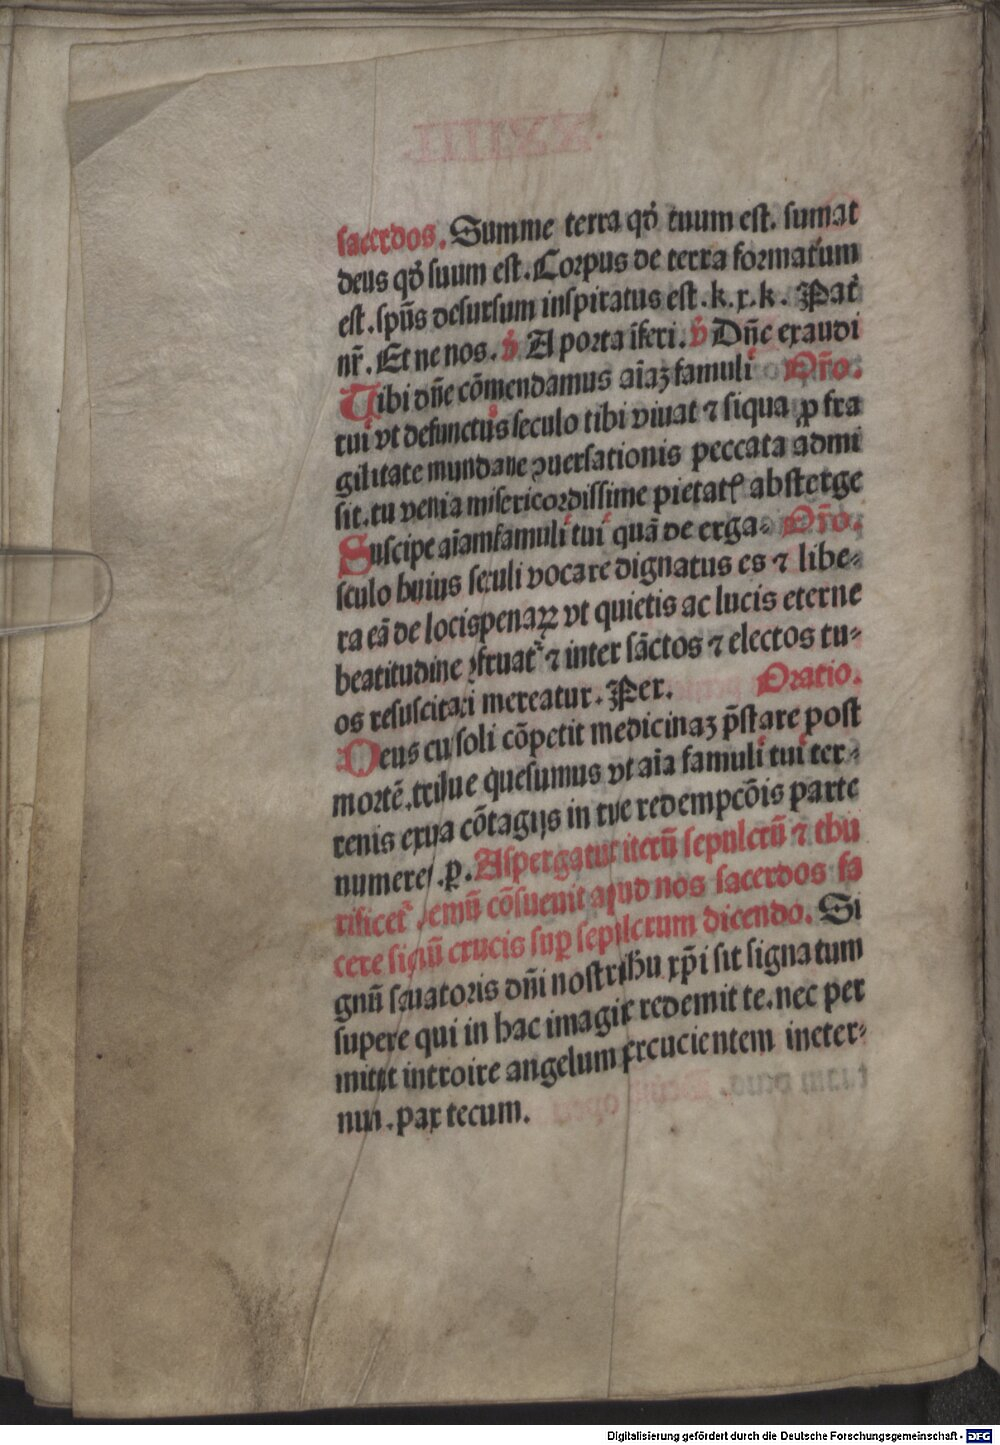 sacerdos. Summe terra qď tuum est. sumat
deus qď suum est. Corpus de terra formatum
est. spūs desursum inspiratus est. k. x. k. Pat᷑
nr̄. Et ne nos. v̓ A porta īferi. v̓ Dn̄e exaudi
Tibi dn̄e cōmendamus aīaꝫ famuli Or̄o.
tui vt defunctus seculo tibi viuat ⁊ siqua ꝓ fra
gilitate mundane ↄuersationis peccata admi
sit. tu venia misericordissime pietatꝭ absterge
Suscipe aīam famuli tui quā de erga- Or̄o.
sculo huius seculi vocare dignatus es ⁊ libe-
ra eā de locis penaꝝ vt quietis ac lucis eterne
beatitudine ꝑfruat᷑ ⁊ inter sāctos ⁊ electos tu-
os resuscitari mereatur. Per. Oratio.
Deus cui soli cōpetit medicinaꝫ p̄stare post
mortē. tribue quesumus vt aīa famuli tui ter-
renis exuta cōtagijs in tue redempcōis parte
numeret. ꝑ. Aspergatur iterū sepulcrū ⁊ thu
rificet᷑ demū cōsuenit apud nos sacerdos fa
cere signū crucis suꝑ sepulcrum dicendo. Si
gnū saluatoris dn̄i nostri ihu xp̄i sit signatum
super te qui in hac imagine redemit te. nec per
mittit introire angelum percucientem in eter-
num. pax tecum.
Digitalisierung gefördert durch die Deutsche Forschungsgemeinschaft - DFG